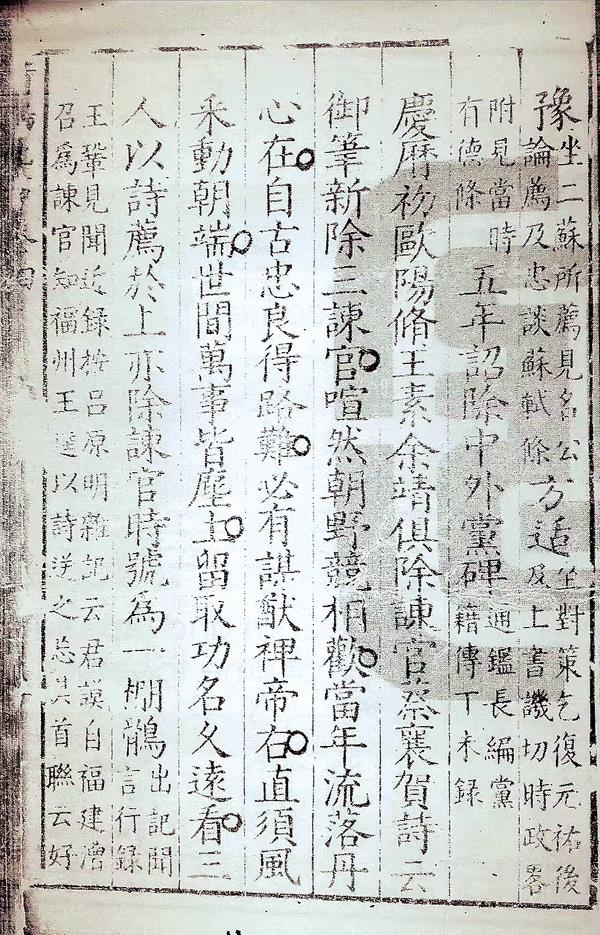 豫坐二蘇所薦見名公論薦及忠談蘇軾條方适坐對策乞復元祐後及上書譏切時政畧
附見當時有德條五年詔除中外黨碑通鑑長編黨籍傳丁未錄
慶曆初歐陽脩王素余靖俱除諫官蔡襄賀詩云
御筆新除三諫官喧然朝野競相歡當年流落丹
心在自古忠良得路難必有謀猷裨帝右直須風
釆動朝端世間萬事皆塵土留取功名久遠看三
人以詩薦於上亦除諫官時號為一棚鶻出記聞言行錄
王鞏見聞近録按呂原明雜記云君謨自福建漕
召爲諫官知福州王逵以詩送之忘其首聯云好